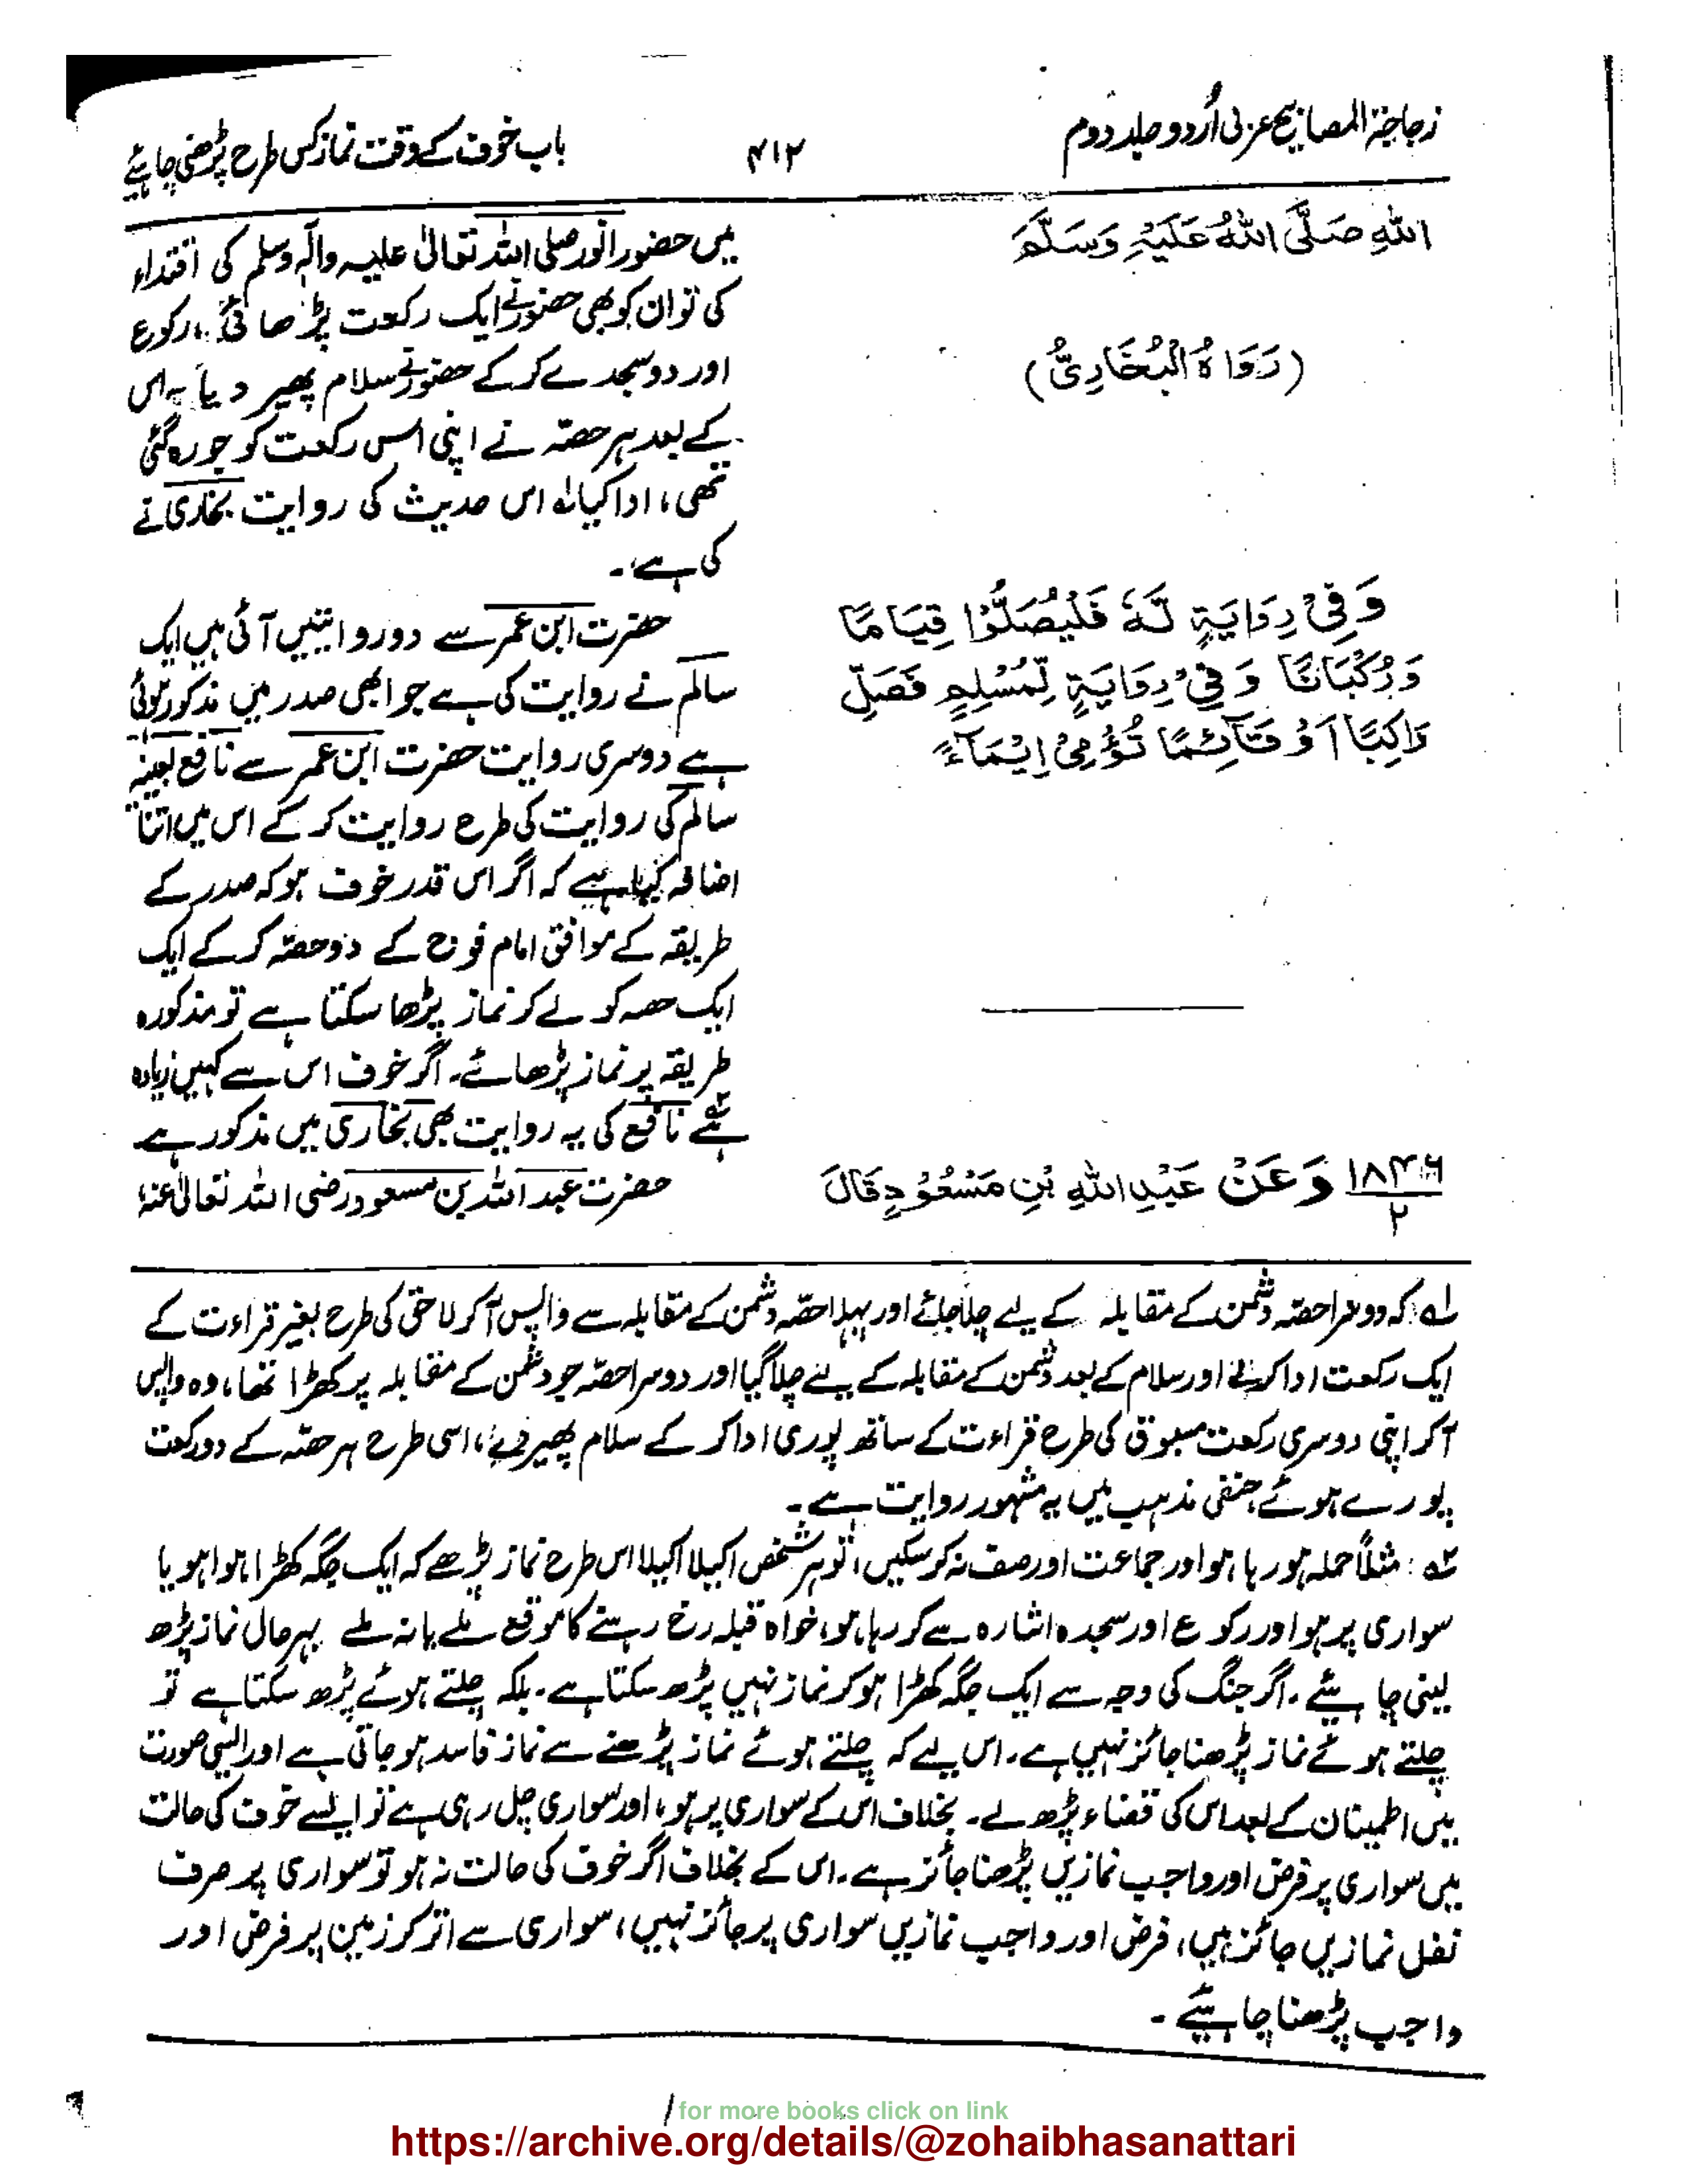 زجاجۃ المصابیح عربی اُردو جلد دوم
۴۱۲
باب خوف کے وقت نماز کس طرح پڑھنی چاہئے
اللّٰہِ صَلَّی اللّٰہُ عَلَیْہِ وَسَلَّمَ
(رَوَاہُ الْبُخَارِیُّ)
وَفِیْ رِوَایَۃٍ لَّہٗ فَلْیُصَلُّوْا قِیَامًا
وَرُکْبَانًا وَفِیْ رِوَایَۃٍ لِّمُسْلِمٍ فَصَلِّ
رَاکِبًا اَوْ قَآئِمًا تُؤْمِیْ اِیْمَآءً
۱۸۴۶/۲ وَعَنْ عَبْدِ اللّٰہِ بْنِ مَسْعُوْدٍ قَالَ
میں حضور انور صلی اللہ تعالیٰ علیہ واٰلہٖ وسلم کی اقتداء
کی تو ان کو بھی حضور نے ایک رکعت پڑھائی، رکوع
اور دو سجدے کر کے حضور نے سلام پھیر دیا، اس
کے بعد ہر حصّہ نے اپنی اس رکعت کو جو رہ گئی
تھی، ادا کیا لہ اس حدیث کی روایت بخاری نے
کی ہے۔
حضرت ابن عمر سے دو روایتیں آئی ہیں ایک
سالم نے روایت کی ہے جو ابھی صدر میں مذکور ہوئی
ہے دوسری روایت حضرت ابن عمر سے نافع بعینہٖ
سالم کی روایت کی طرح روایت کر کے اس میں اتنا
اضافہ کیا ہے کہ اگر اس قدر خوف ہو کہ صدر کے
طریقہ کے موافق امام فوج کے دو حصّہ کر کے ایک
ایک حصہ کو لے کر نماز پڑھا سکتا ہے تو مذکورہ
طریقہ پر نماز پڑھائے۔ اگر خوف اس سے کہیں زیادہ
ہے نافع کی یہ روایت بھی بخاری میں مذکور ہے
حضرت عبد اللہ بن مسعود رضی اللہ تعالیٰ عنہٗ
لہ کہ دوسرا حصّہ دشمن کے مقابلہ کے لیے چلا جائے اور پہلا حصّہ دشمن کے مقابلہ سے واپس آکر لاحق کی طرح بغیر قراءت کے
ایک رکعت ادا کر لے اور سلام کے بعد دشمن کے مقابلہ کے لیے چلا گیا اور دوسرا حصّہ جو دشمن کے مقابلہ پر کھڑا تھا، وہ واپس
آکر اپنی دوسری رکعت مسبوق کی طرح قراءت کے ساتھ پوری ادا کر کے سلام پھیر دے، اسی طرح ہر حصّہ کے دو رکعت
پورے ہوئے حنفی مذہب میں یہ مشہور روایت ہے۔
۲ہ: مثلاً حملہ ہو رہا ہو اور جماعت اور صف نہ کر سکیں، تو ہر شخص اکیلا اکیلا اس طرح نماز پڑھے کہ ایک جگہ کھڑا ہوا ہو یا
سواری پر ہو اور رکوع اور سجدہ اشارہ سے کر رہا ہو، خواہ قبلہ رخ رہنے کا موقع ملے یا نہ ملے بہر حال نماز پڑھ
لینی چاہیئے۔ اگر جنگ کی وجہ سے ایک جگہ کھڑا ہو کر نماز نہیں پڑھ سکتا ہے۔ بلکہ چلتے ہوئے پڑھ سکتا ہے تو
چلتے ہوئے نماز پڑھنا جائز نہیں ہے۔ اس لیے کہ چلتے ہوئے نماز پڑھنے سے نماز فاسد ہو جاتی ہے اور ایسی صورت
میں اطمینان کے بعد اس کی قضاء پڑھ لے۔ بخلاف اس کے سواری پر ہو، اور سواری چل رہی ہے تو ایسے خوف کی حالت
میں سواری پر فرض اور واجب نمازیں پڑھنا جائز ہے۔ اس کے بخلاف اگر خوف کی حالت نہ ہو تو سواری پر صرف
نفل نمازیں جائز ہیں، فرض اور واجب نمازیں سواری پر جائز نہیں، سواری سے اتر کر زمین پر فرض اور
واجب پڑھنا چاہیئے۔
for more books click on link
https://archive.org/details/@zohaibhasanattari